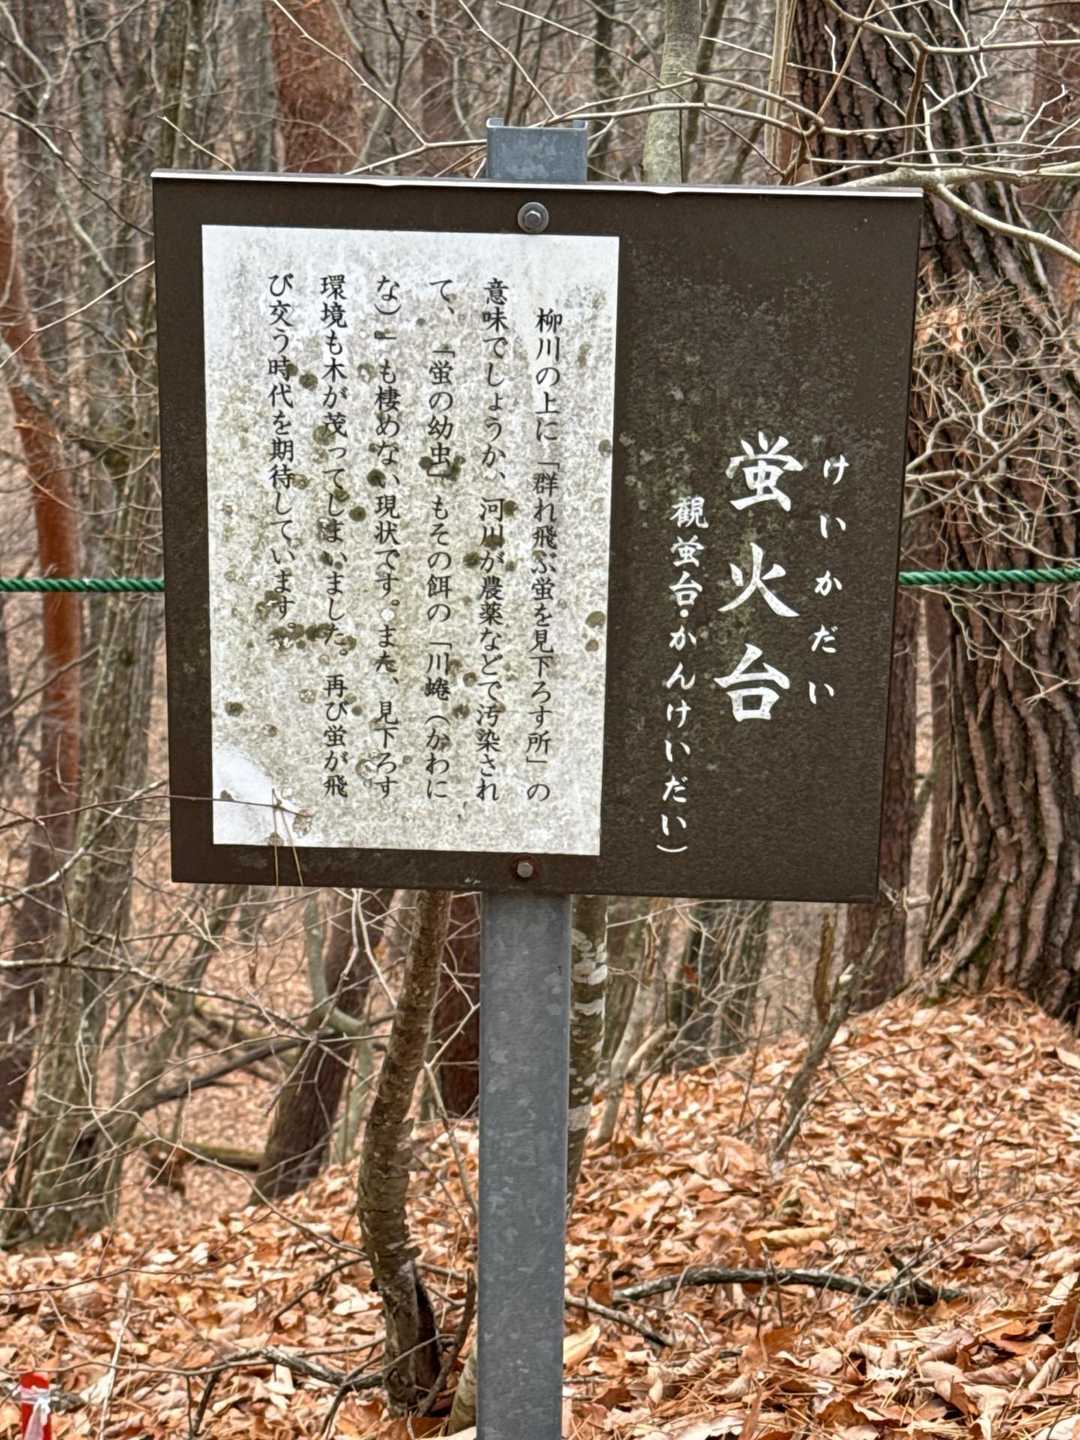 けいかだい
蛍火台
観蛍台・かんけいだい）
柳川の上に「群れ飛ぶ蛍を見下ろす所」の
意味でしょうか、河川が農薬などで汚染され
て、「蛍の幼虫」もその餌の「川蜷（かわに
な）」も棲めない現状です。また、見下ろす
環境も木が茂ってしまいました。再び蛍が飛
び交う時代を期待しています。